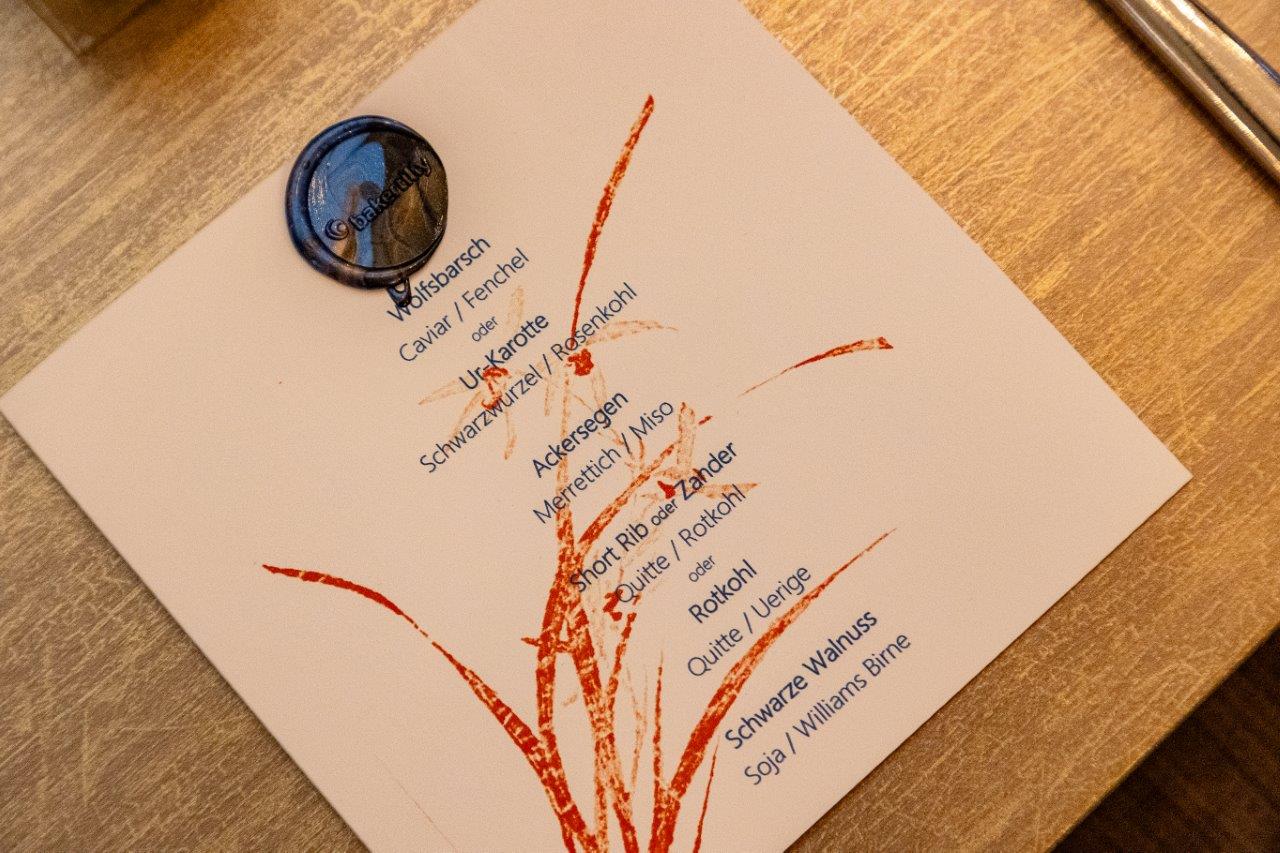 bakertilly
Wolfsbarsch
Caviar / Fenchel
oder
Ur-Karotte
Schwarzwurzel / Rosenkohl
Ackersegen
Merrettich / Miso
Short Rib oder Zander
Quitte / Rotkohl
oder
Rotkohl
Quitte / Uerige
Schwarze Walnuss
Soja / Williams Birne